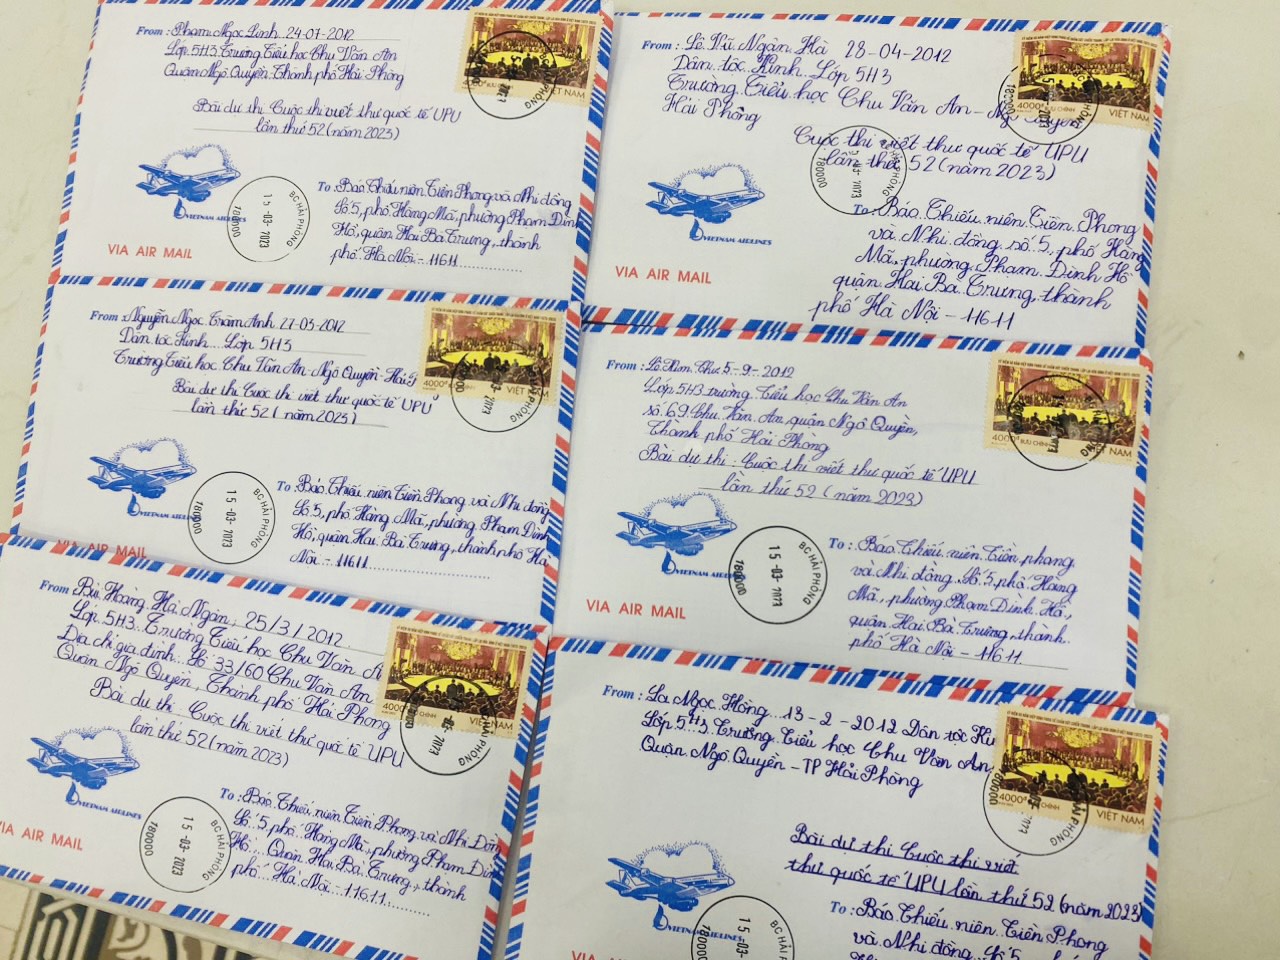 From: Phạm Ngọc Linh 24-07-2012
Lớp 5H3 Trường Tiểu học Chu Văn An
Quận Ngô Quyền Thành phố Hải Phòng
Bài dự thi Cuộc thi viết thư quốc tế UPU
lần thứ 52 (năm 2023)
VIỆT NAM
BƯU CHÍNH
VIETNAM AIRLINES
BC HẢI PHÒNG
15-03-2023
180000
VIA AIR MAIL
To: Báo Thiếu niên Tiền Phong và Nhi đồng
Số 5, phố Hàng Mã, phường Phạm Đình
Hổ, quận Hai Bà Trưng, thành
phố Hà Nội - 11611
From: Lê Vũ Ngân Hà 28-04-2012
Dân tộc Kinh Lớp 5H3
Trường Tiểu học Chu Văn An - Ngô Quyền
Hải Phòng
Cuộc thi viết thư quốc tế UPU
lần thứ 52 (năm 2023)
4000đ BƯU CHÍNH VIỆT NAM
180000
VIETNAM AIRLINES
VIA AIR MAIL
To: Báo Thiếu niên Tiền Phong
và Nhi đồng số 5, phố Hàng
Mã, phường Phạm Đình Hổ
quận Hai Bà Trưng, thành
phố Hà Nội - 11611
From: Nguyễn Ngọc Trâm Anh 27-03-2012
Dân tộc Kinh Lớp 5H3
Trường Tiểu học Chu Văn An Ngô Quyền - Hải
Bài dự thi Cuộc thi viết thư quốc tế UPU
lần thứ 52 (năm 2023)
4000đ VIỆT NAM
VIETNAM AIRLINES
BC HẢI PHÒNG
15-03-2023
180000
VIA AIR MAIL
To: Báo Thiếu niên Tiền Phong và Nhi đồng
Số 5, phố Hàng Mã, phường Phạm Đình
Hổ, quận Hai Bà Trưng, thành phố Hà
Nội - 11611
From: Lê Kim Thư 5-9-2012
Lớp 5H3 trường Tiểu học Chu Văn An
số 69 Chu Văn An, quận Ngô Quyền,
Thành phố Hải Phòng
Bài dự thi: Cuộc thi viết thư quốc tế UPU
lần thứ 52 (năm 2023)
4000đ BƯU CHÍNH VIỆT NAM
VIETNAM AIRLINES
BC HẢI PHÒNG
15-03-2023
180000
VIA AIR MAIL
To: Báo Thiếu niên Tiền phong
và Nhi đồng Số 5, phố Hàng
Mã, phường Phạm Đình Hổ,
quận Hai Bà Trưng, thành
phố Hà Nội - 11611
From: Bùi Hoàng Hà Ngân, 25/3/2012
Lớp 5H3 Trường Tiểu học Chu Văn A
Địa chỉ gia đình: Số 33/60 Chu Văn An
Quận Ngô Quyền, Thành phố Hải Phòng
Bài dự thi Cuộc thi viết thư quốc tế UPU
lần thứ 52 (năm 2023)
4000đ VIỆT NAM
VIETNAM AIRLINES
BC HẢI PHÒNG
15-03-2023
180000
VIA AIR MAIL
To: Báo Thiếu niên Tiền Phong và Nhi Đồn
Số 5, phố Hàng Mã, phường Phạm Đình
Hổ Quận Hai Bà Trưng, thành
phố Hà Nội 11611
From: La Ngọc Hồng 13-2-2012 Dân tộc Ki
Lớp 5H3 Trường Tiểu học Chu Văn An
Quận Ngô Quyền - TP Hải Phòng
Bài dự thi Cuộc thi viết
thư quốc tế UPU lần thứ 52 (năm 2023)
4000đ BƯU CHÍNH VIỆT NAM
180000
15-03
180000
VIA AIR MAIL
To: Báo Thiếu niên Tiền Phong
và Nhi đồng Số 5